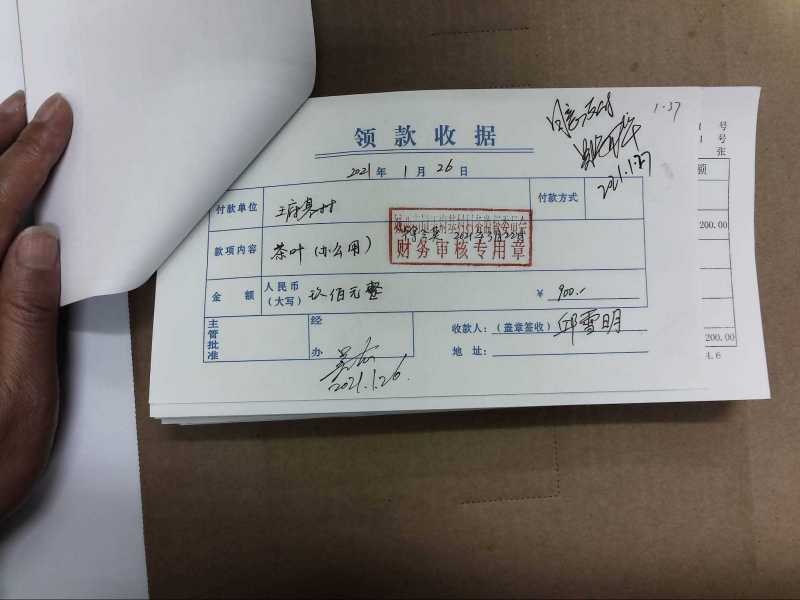 1-37
领款收据
2021年1月26日
2021.1.27
付款单位
付款方式
款项内容 茶叶(办公用)
2021年3月22日
财务审核专用章
金额 人民币(大写) 玖佰元整 ¥ 900.-
主管批准
经办
2021.1.26.
收款人:(盖章签收) 邱雪明
地址:
号
号
张
额
200.00
200.00